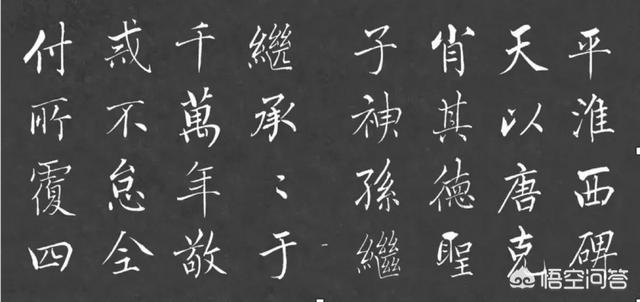 平淮西碑
天以唐克
肖其德聖
子神孫繼
繼承〻于
千萬年敬
戒不怠全
付所覆四
悟空问答